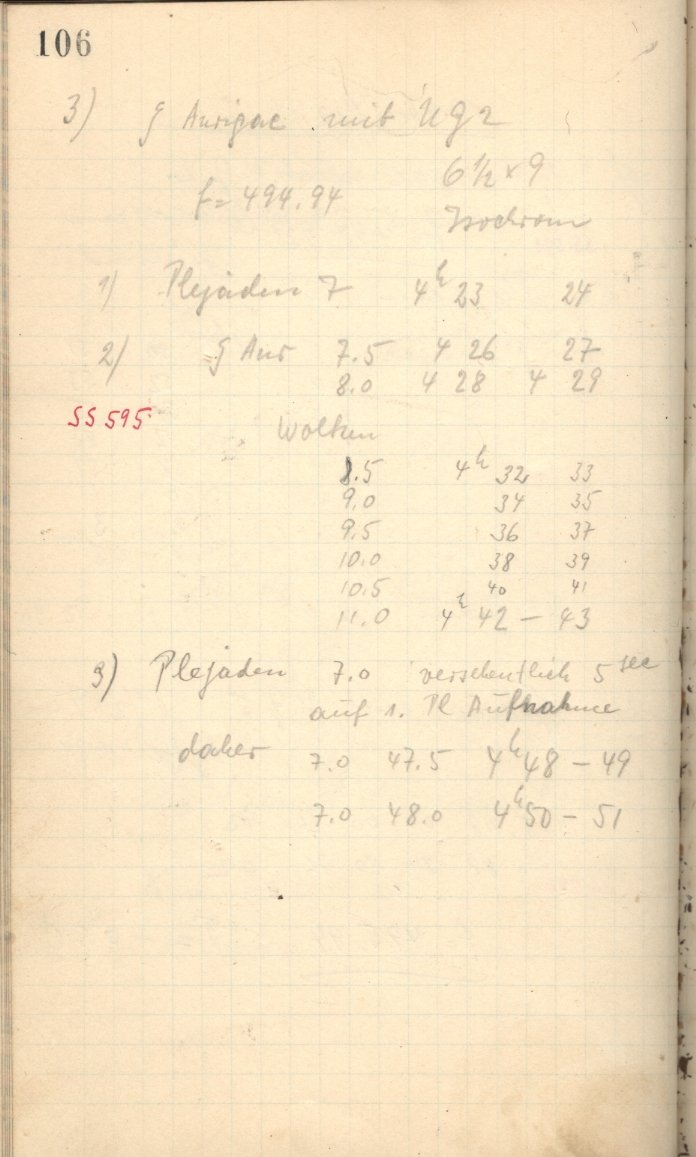 106
3) ζ Aurigae mit UG2
6 1/2 x 9
f = 494.94
Isochrom
1) Plejaden 7 4h 23 24
2) ζ Aur 7.5 4 26 27
8.0 4 28 4 29
SS 595
Wolken
8.5 4h 32 33
9.0 34 35
9.5 36 37
10.0 38 39
10.5 40 41
11.0 4h 42 – 43
3) Plejaden 7.0 versehentlich 5 sec
auf 1. Pl Aufnahme
daher 7.0 47.5 4h 48 – 49
7.0 48.0 4h 50 – 51